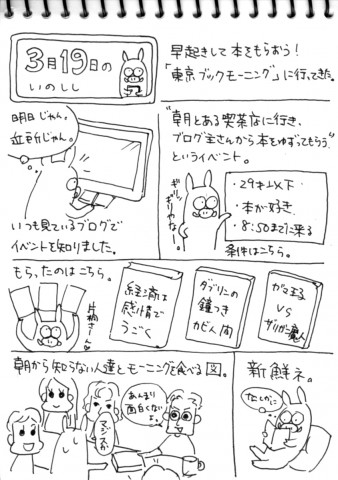 3月19日の
いのしし
早起きして本をもらおう!
「東京ブックモーニング」に行ってきた。
明日じゃん。
近所じゃん。
いつも見ているブログで
イベントを知りました。
"朝とある喫茶店に行き、
ブログ主さんから本をゆずってもらう"
というイベント。
ギリッ
ギリやなー。
・29才以下
・本が好き
・8:50までに来る
条件はこちら。
もらったのはこちら。
片桐さーん
経済は
感情で
うごく
ダブリンの
鐘つき
カビ人間
ガマ王子
VS
ザリガニ魔人
朝から知らない人達とモーニングを食べる図。
マジスか
あんまり
面白くない
よ。
新鮮ネ。
たしかに